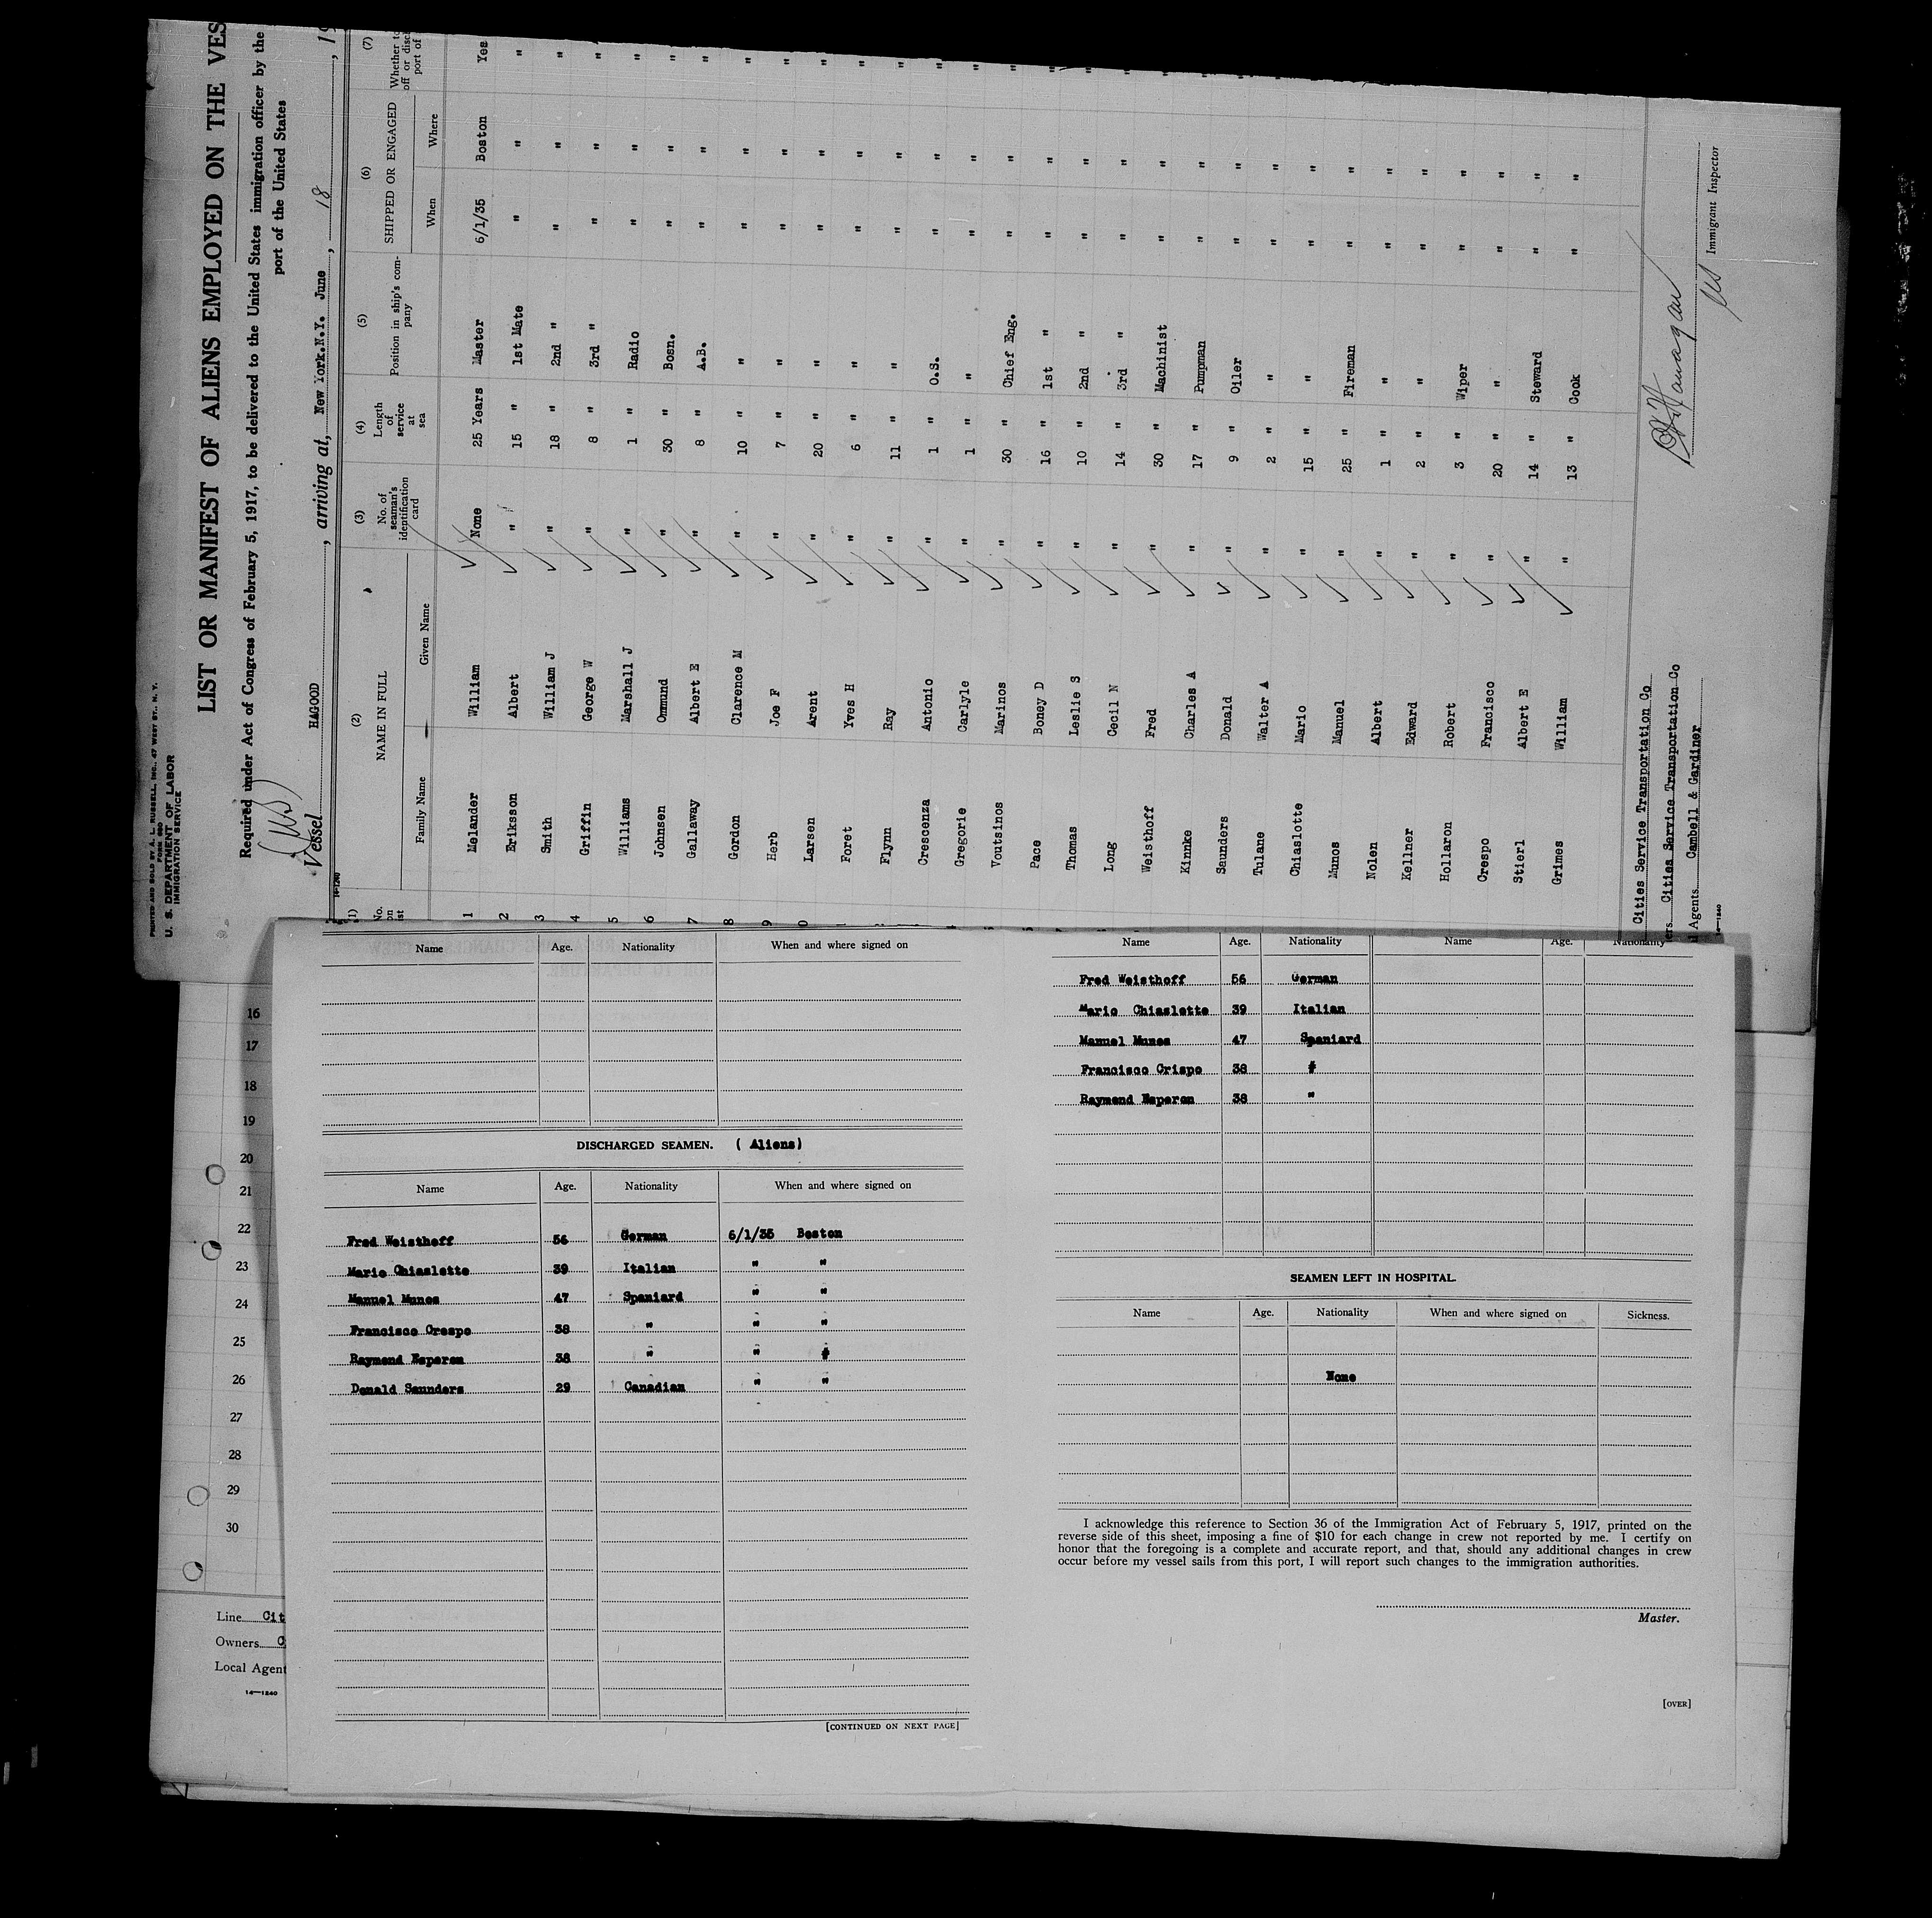 PRINTED AND SOLD BY A. L. RUSSELL, INC., 47 WEST ST., N. Y.
FORM 680
U. S. DEPARTMENT OF LABOR
IMMIGRATION SERVICE
LIST OR MANIFEST OF ALIENS EMPLOYED ON THE VES
Required under Act of Congress of February 5, 1917, to be delivered to the United States immigration officer by the
port of the United States
Vessel HAGOOD, arriving at, New York.N.Y. June 18, 19
14-1240
(1) (2) (3) (4) (5) (6) (7)
No. on list NAME IN FULL No. of seaman's identification card Length of service at sea Position in ship's company SHIPPED OR ENGAGED Whether to off or disch port of
Family Name Given Name When Where
1 Melander William None 25 Years Master 6/1/35 Boston Yes
2 Eriksson Albert " 15 " 1st Mate " " "
3 Smith William J " 18 " 2nd " " " "
4 Griffin George W " 8 " 3rd " " " "
5 Williams Marshall J " 1 " Radio " " "
6 Johnsen Ommund " 30 " Bosn. " " "
7 Gallaway Albert E " 8 " A.B. " " "
8 Gordon Clarence M " 10 " " " " "
9 Herb Joe F " 7 " " " " "
0 Larsen Arent " 20 " " " " "
Foret Yves H " 6 " " " " "
Flynn Ray " 11 " " " " "
Crescenza Antonio " 1 " O.S. " " "
Gregorie Carlyle " 1 " " " " "
Voutsinos Marinos " 30 " Chief Eng. " " "
Pace Boney D " 16 " 1st " " " "
Thomas Leslie S " 10 " 2nd " " " "
Long Cecil N " 14 " 3rd " " " "
Weisthoff Fred " 30 " Machinist " " "
Kinnke Charles A " 17 " Pumpman " "
Saunders Donald " 9 " Oiler " "
Tulane Walter A " 2 " " " "
Chiaslotte Mario " 15 " " " "
Munos Manuel " 25 " Fireman " "
Nolen Albert " 1 " " " "
Kellner Edward " 2 " " " "
Hollaron Robert " 3 " Wiper " "
Crespo Francisco " 20 " " " "
Stierl Albert E " 14 " Steward " "
Grimes William " 13 " Cook " "
Cities Service Transportation Co
ers Cities Service Transportation Co
l Agents Cambell & Gardiner
14-1240
Immigrant Inspector
16
17
18
19
20
21
22
23
24
25
26
27
28
29
30
Line Cit
Owners C
Local Agent
14-1240
Name Age. Nationality When and where signed on
DISCHARGED SEAMEN. ( Aliens)
Name Age. Nationality When and where signed on
Fred Weisthoff 56 German 6/1/35 Boston
Mario Chiaslotte 39 Italian " "
Manuel Munos 47 Spaniard " "
Francisco Crespo 38 " " "
Raymond Esperon 38 " " "
Donald Saunders 29 Canadian " "
[CONTINUED ON NEXT PAGE]
Name Age. Nationality Name Age. Nationality
Fred Weisthoff 56 German
Mario Chiaslotte 39 Italian
Manuel Munos 47 Spaniard
Francisco Crispo 38 "
Raymond Esperon 38 "
SEAMEN LEFT IN HOSPITAL.
Name Age. Nationality When and where signed on Sickness.
None
I acknowledge this reference to Section 36 of the Immigration Act of February 5, 1917, printed on the
reverse side of this sheet, imposing a fine of $10 for each change in crew not reported by me. I certify on
honor that the foregoing is a complete and accurate report, and that, should any additional changes in crew
occur before my vessel sails from this port, I will report such changes to the immigration authorities.
Master.
[OVER]